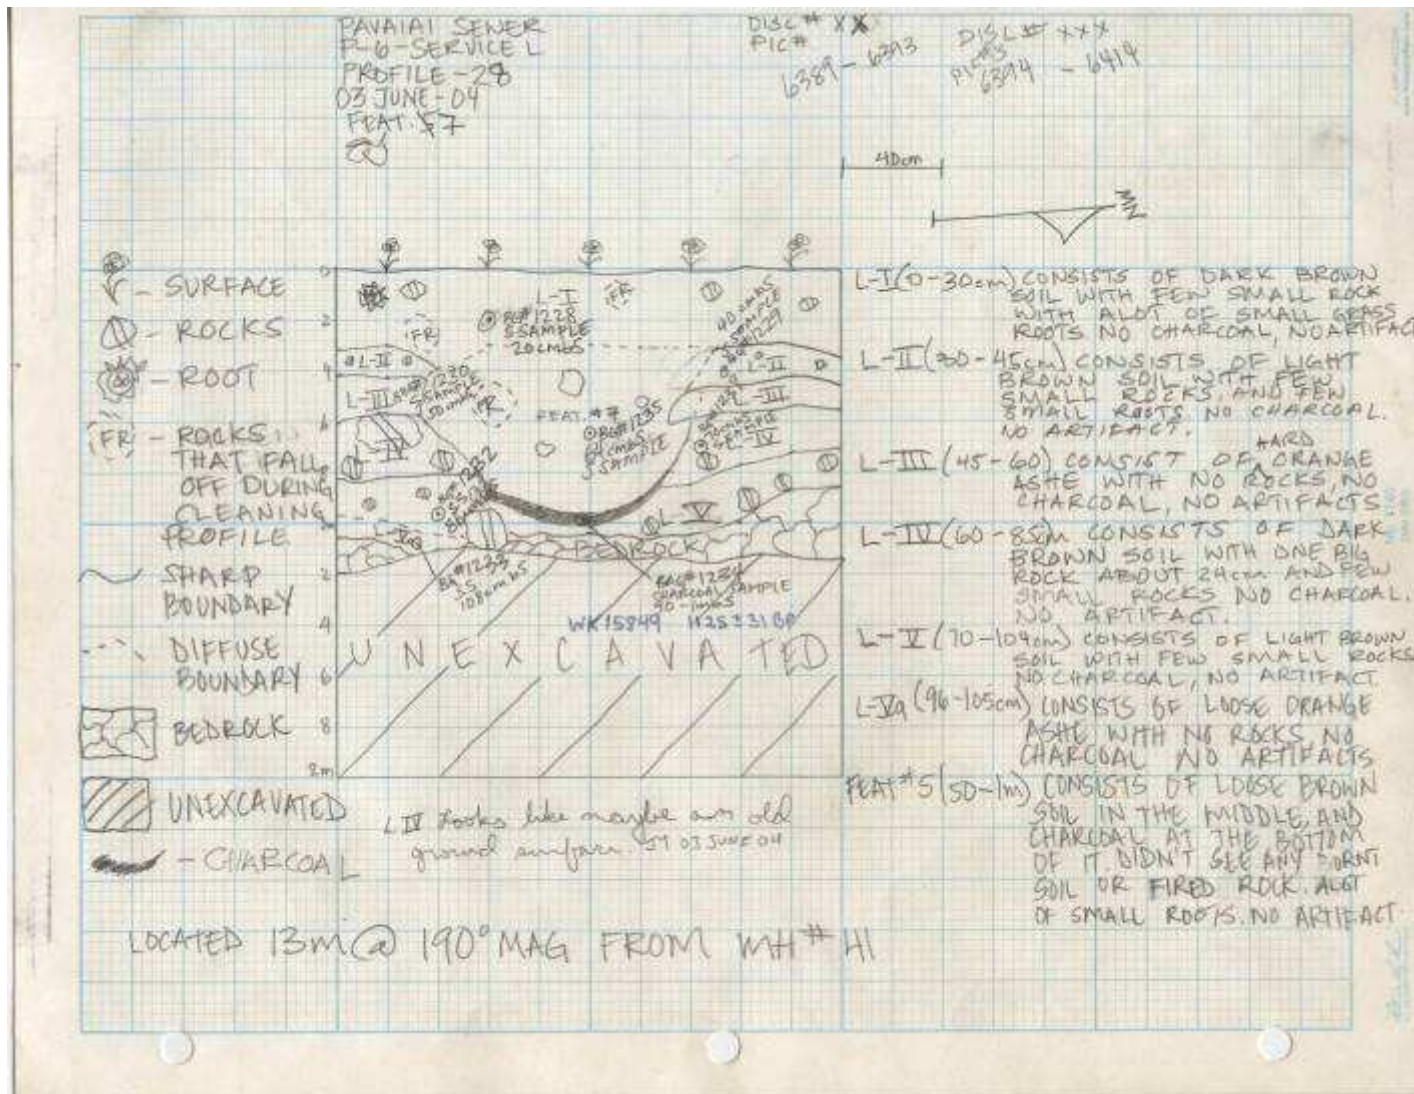 PAVAIAI SEWER
P-6-SERVICE L
PROFILE-28
03 JUNE-04
FEAT. #7
DISC # XX
PIC#
6389 - 6393
DISC # XXX
PIC#
6394 - 6414
40cm
N
- SURFACE
- ROCKS
- ROOT
FR - ROCKS
THAT FALL
OFF DURING
CLEANING
PROFILE
SHARP
BOUNDARY
DIFFUSE
BOUNDARY
BEDROCK
UNEXCAVATED
- CHARCOAL
0
2
4
6
2
4
6
8
2m
L-I
FR
BG#1228
S SAMPLE
20cmbS
FR
40cmbS
S SAMPLE
BG#1229
L-II
L-II
L-III
#1230
S SAMPLE
50cmbS
FR
FEAT. #7
BG#1235
S SAMPLE
L-III
S SAMPLE
L-IV
IV
#1232
L-V
L-Va
BEDROCK
BG#1233
S.S
108cmbS
BAG#1234
CHARCOAL SAMPLE
WK15849 1125±31 BP
UNEXCAVATED
L-I (0-30cm) CONSISTS OF DARK BROWN
SOIL WITH FEW SMALL ROCK
WITH ALOT OF SMALL GRASS
ROOTS NO CHARCOAL, NO ARTIFACT
L-II (30-45cm) CONSISTS OF LIGHT
BROWN SOIL WITH FEW
SMALL ROCKS, AND FEW
SMALL ROOTS. NO CHARCOAL.
NO ARTIFACT.
L-III (45-60) CONSIST OF HARD ORANGE
ASHE WITH NO ROCKS, NO
CHARCOAL, NO ARTIFACTS
L-IV (60-85cm CONSISTS OF DARK
BROWN SOIL WITH ONE BIG
ROCK ABOUT 24cm AND FEW
SMALL ROCKS NO CHARCOAL.
NO ARTIFACT.
L-V (70-109cm) CONSISTS OF LIGHT BROWN
SOIL WITH FEW SMALL ROCKS
NO CHARCOAL, NO ARTIFACT
L-Va (96-105cm) CONSISTS OF LOOSE ORANGE
ASHE WITH NO ROCKS, NO
CHARCOAL NO ARTIFACTS
FEAT #5 (50-1m) CONSISTS OF LOOSE BROWN
SOIL IN THE MIDDLE, AND
CHARCOAL AT THE BOTTOM
OF IT. DIDN'T SEE ANY BURNT
SOIL OR FIRED ROCK. ALOT
OF SMALL ROOTS. NO ARTIFACT
L IV Looks like maybe an old
ground surface 03 JUNE 04
LOCATED 13m @ 190° MAG FROM MH# H1